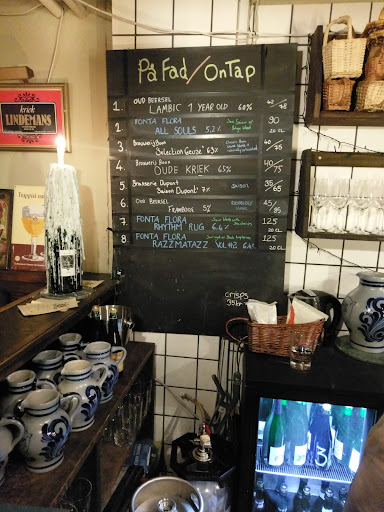 På Fad / On Tap
1. OUD BEERSEL
LAMBIC 1 YEAR OLD 6.0%
2 FONTA FLORA 90
ALL SOULS 5,2% 20 CL.
3. Brouwerij Boon
"Selection Geuze" 6.3%
4. Brouwerij Boon 40/75
OUDE KRIEK 6.5%
5. Brasserie Dupont 35/65
Saison Dupont 7% SAISON
6 Oud Beersel 45/85
FRAMBOISE 5%
7 FONTA FLORA 125
RHYTHM RUG 6.4% 20 CL
8 FONTA FLORA 125
RAZZMATAZZ VOL #2 6.4% 20 CL.
CRISPS
35kr
kriek
LINDEMANS